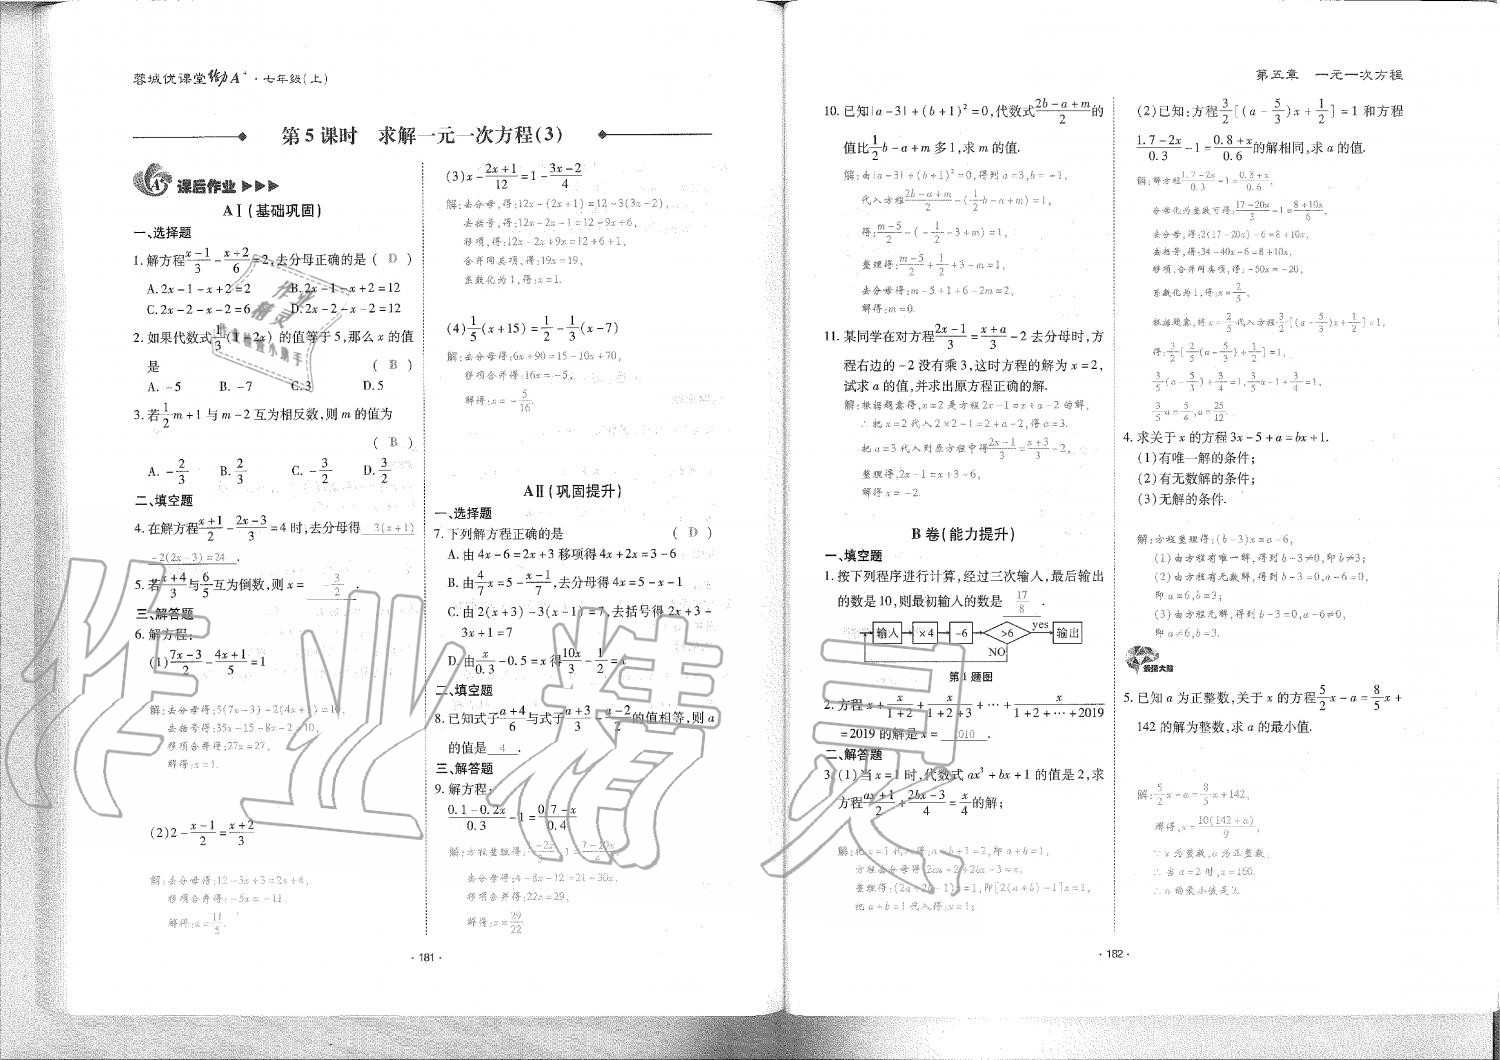 蓉城优课堂给力A⁺·七年级(上)
第5课时 求解一元一次方程(3)
课后作业
AⅠ(基础巩固)
一、选择题
1.解方程(x-1)/3-(x+2)/6=2,去分母正确的是 ( D )
A.2x-1-x+2=2 B.2x-1-x+2=12
C.2x-2-x-2=6 D.2x-2-x-2=12
2.如果代数式1/3(1-2x)的值等于5,那么x的值
是 ( B )
A. -5 B. -7 C.3 D.5
3.若1/2m+1与m-2互为相反数,则m的值为
( B )
A. -2/3 B. 2/3 C. -3/2 D. 3/2
二、填空题
4.在解方程(x+1)/2-(2x-3)/3=4时,去分母得 3(x+1)
-2(2x-3)=24 .
5.若(x+4)/3与6/5互为倒数,则x= -3/2 .
三、解答题
6.解方程:
(1)(7x-3)/2-(4x+1)/5=1
解:去分母得:5(7x-3)-2(4x+1)=10,
去括号得:35x-15-8x-2=10,
移项合并得:27x=27,
解得:x=1.
(2)2-(x-1)/2=(x+2)/3
解:去分母得:12-3x+3=2x+4,
移项合并得:-5x=-11
解得:x=11/5.
(3)x-(2x+1)/12=1-(3x-2)/4
解:去分母,得:12x-(2x+1)=12-3(3x-2),
去括号,得:12x-2x-1=12-9x+6,
移项,得:12x-2x+9x=12+6+1,
合并同类项,得:19x=19,
系数化为1,得:x=1.
(4)1/5(x+15)=1/2-1/3(x-7)
解:去分母得:6x+90=15-10x+70,
移项合并得:16x=-5,
解得:x=-5/16.
AⅡ(巩固提升)
一、选择题
7.下列解方程正确的是 ( D )
A.由4x-6=2x+3移项得4x+2x=3-6
B.由4/7x=5-(x-1)/7,去分母得4x=5-x-1
C.由2(x+3)-3(x-1)=7,去括号得2x+3-
3x+1=7
D.由x/0.3-0.5=x得10x/3-1/2=x
二、填空题
8.已知式子(a+4)/6与式子(a+3)/3-(a-2)/2的值相等,则a
的值是 4 .
三、解答题
9.解方程:
(0.1-0.2x)/0.3-1=(0.7-x)/0.4
解:方程整理得:(1-2x)/3-1=(7-10x)/4,
去分母得:4-8x-12=21-30x,
移项合并得:22x=29,
解得:x=29/22
·181·
第五章 一元一次方程
10.已知|a-3|+(b+1)²=0,代数式(2b-a+m)/2的
值比1/2b-a+m多1,求m的值.
解:由|a-3|+(b+1)²=0,得到a=3,b=-1,
代入方程(2b-a+m)/2-(1/2b-a+m)=1,
得:(m-5)/2-(-1/2-3+m)=1,
整理得:(m-5)/2+1/2+3-m=1,
去分母得:m-5+1+6-2m=2,
解得:m=0.
11.某同学在对方程(2x-1)/3=(x+a)/3-2去分母时,方
程右边的-2没有乘3,这时方程的解为x=2,
试求a的值,并求出原方程正确的解.
解:根据题意得,x=2是方程2x-1=x+a-2的解,
∴把x=2代入2×2-1=2+a-2,得a=3.
把a=3代入到原方程中得(2x-1)/3=(x+3)/3-2,
整理得,2x-1=x+3-6,
解得x=-2.
B卷(能力提升)
一、填空题
1.按下列程序进行计算,经过三次输入,最后输出
的数是10,则最初输入的数是 17/8 .
输入 ×4 -6 >6 yes 输出
NO
第1题图
2.方程x+x/(1+2)+x/(1+2+3)+…+x/(1+2+…+2019)
=2019的解是x= 1010 .
二、解答题
3.(1)当x=1时,代数式ax³+bx+1的值是2,求
方程(ax+1)/2+(2bx-3)/4=x/4的解;
解:把x=1代入得:a+b+1=2,即a+b=1,
方程去分母得:2ax+2+2bx-3=x,
整理得:(2a+2b-1)x=1,即[2(a+b)-1]x=1,
把a+b=1代入得:x=1;
(2)已知:方程3/2[(a-5/3)x+1/2]=1和方程
(1.7-2x)/0.3-1=(0.8+x)/0.6的解相同,求a的值.
解:解方程(1.7-2x)/0.3-1=(0.8+x)/0.6,
分母化为整数可得:(17-20x)/3-1=(8+10x)/6,
去分母,得:2(17-20x)-6=8+10x,
去括号,得:34-40x-6=8+10x,
移项、合并同类项,得:-50x=-20,
系数化为1,得:x=2/5,
根据题意,将x=2/5代入方程3/2[(a-5/3)x+1/2]=1,
得:3/2[2/5(a-5/3)+1/2]=1,
3/5(a-5/3)+3/4=1,3/5a-1+3/4=1,
3/5a=5/4,a=25/12.
4.求关于x的方程3x-5+a=bx+1.
(1)有唯一解的条件;
(2)有无数解的条件;
(3)无解的条件.
解:方程整理得:(b-3)x=a-6,
(1)由方程有唯一解,得到b-3≠0,即b≠3;
(2)由方程有无数解,得到b-3=0,a-6=0,
即a=6,b=3;
(3)由方程无解,得到b-3=0,a-6≠0,
即a≠6,b=3.
最强大脑
5.已知a为正整数,关于x的方程5/2x-a=8/5x+
142的解为整数,求a的最小值.
解:5/2x-a=8/5x+142,
解得,x=10(142+a)/9,
∵x为整数,a为正整数,
∴当a=2时,x=160.
∴a的最小值是2.
·182·
作业精灵
作业
精灵